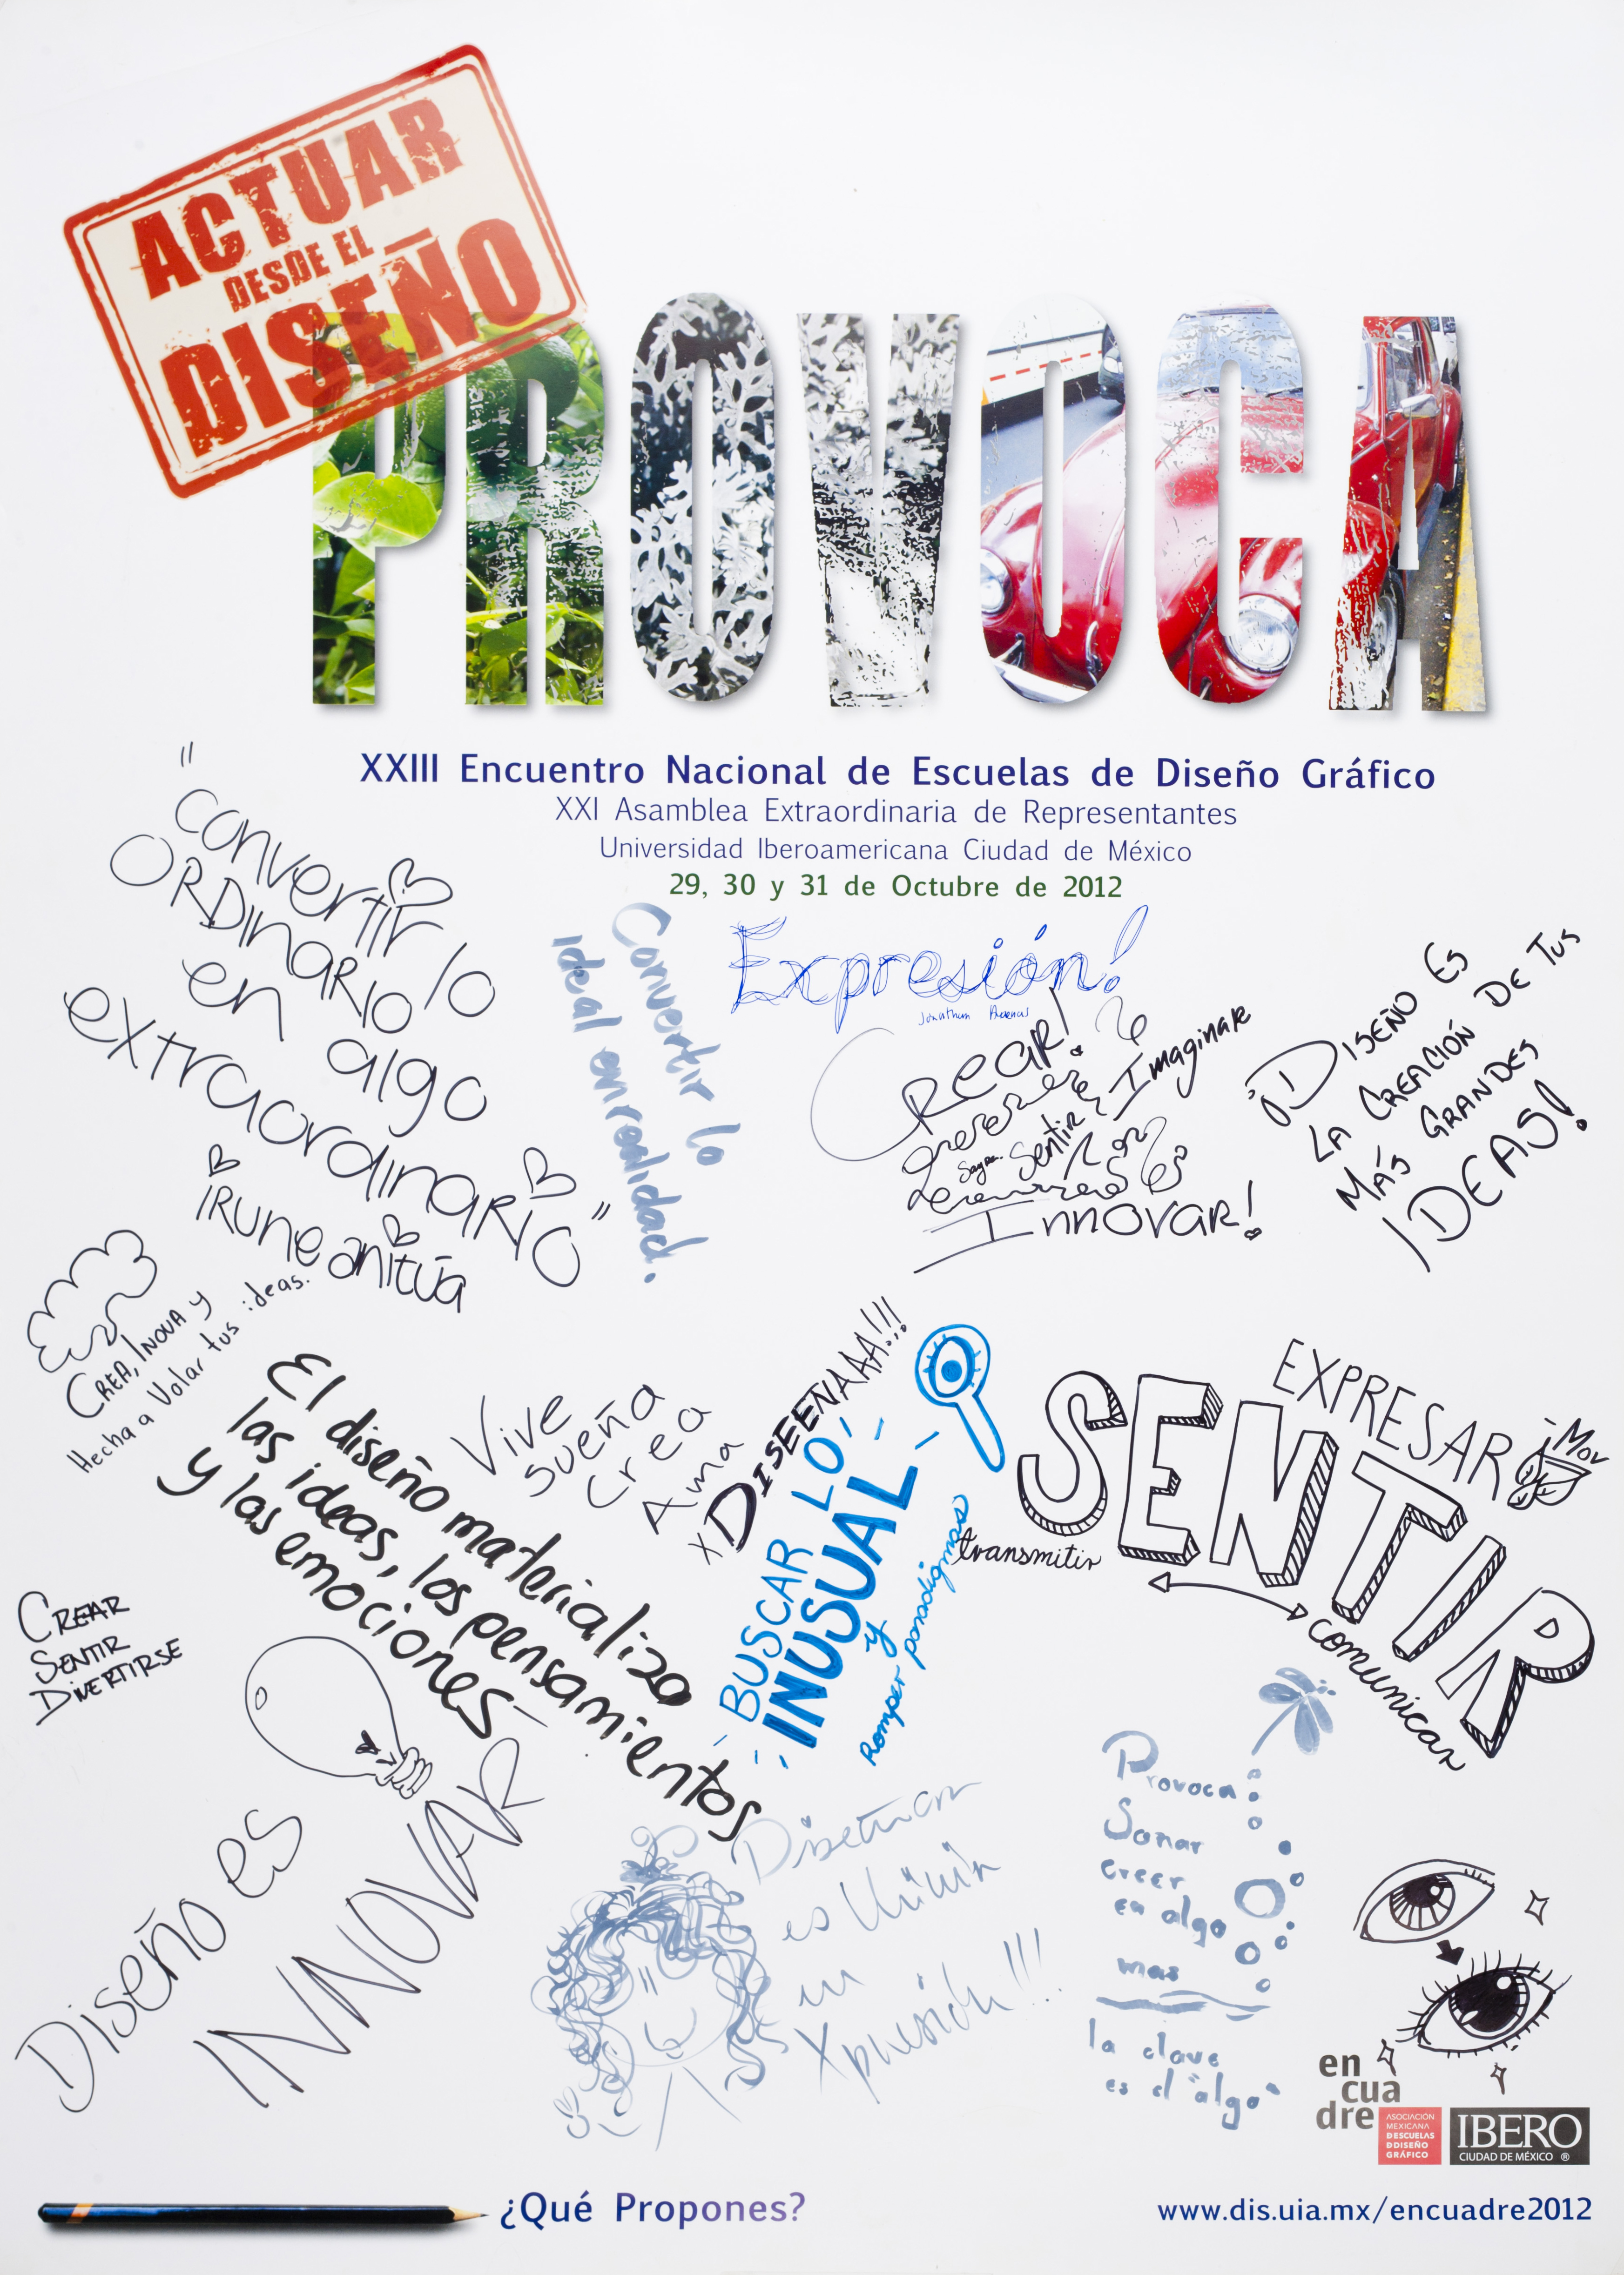 ACTUAR
DESDE EL
DISEÑO
PROVOCA
XXIII Encuentro Nacional de Escuelas de Diseño Gráfico
XXI Asamblea Extraordinaria de Representantes
Universidad Iberoamericana Ciudad de México
29, 30 y 31 de Octubre de 2012
"Convertir lo
ORDINARIO
en algo
extraordinario"
IRUNE anitúa
Convertir lo
ideal en realidad.
Expresión!
Jonathan
Crear!
Sentir Imaginar
Innovar!
¡DISEÑO ES
LA CREACIÓN DE TUS
MÁS GRANDES
IDEAS!
CREA, INOVA y
Hecha a Volar tus ideas.
El diseño materializa
las ideas, los pensamientos
y las emociones
Vive
sueña
crea
Ama
x DISEEÑAAA!!!
BUSCAR LO
INUSUAL
y
Romper paradigmas
EXPRESAR
SENTIR
transmitir
comunicar
CREAR
SENTIR
DIVERTIRSE
Diseño es
INNOVAR
Provoca:
Sonar
creer
en algo
mas
la clave
es el "algo"
en
cua
dre
ASOCIACIÓN
MEXICANA
DESCUELAS
DDISEÑO
GRÁFICO
IBERO
CIUDAD DE MÉXICO ®
¿Qué Propones?
www.dis.uia.mx/encuadre2012